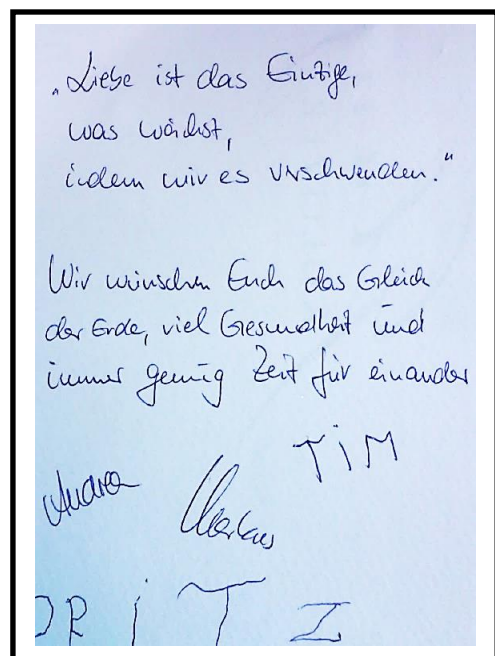 „Liebe ist das Einzige,
was wächst,
indem wir es verschwenden."
Wir wünschen Euch das Glück
der Erde, viel Gesundheit und
immer genug Zeit für einander
Andrea
Markus
TiM
ORiTZ